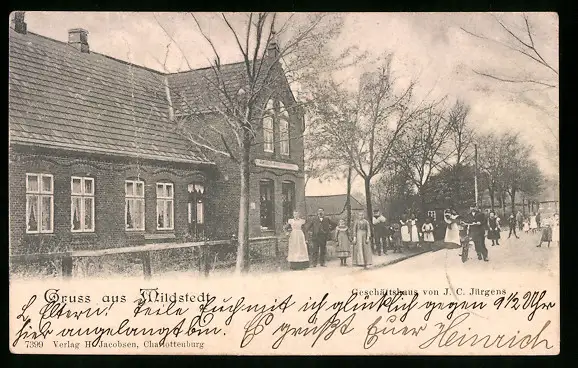 Gruss aus Mildstedt
Geschäftshaus von J. C. Jürgens
L. Eltern! Teile Euch mit ich glücklich gegen 9 1/2 Uhr
hier angelangt bin. Es grüßt Euer Heinrich
7399 Verlag H. Jacobsen, Charlottenburg